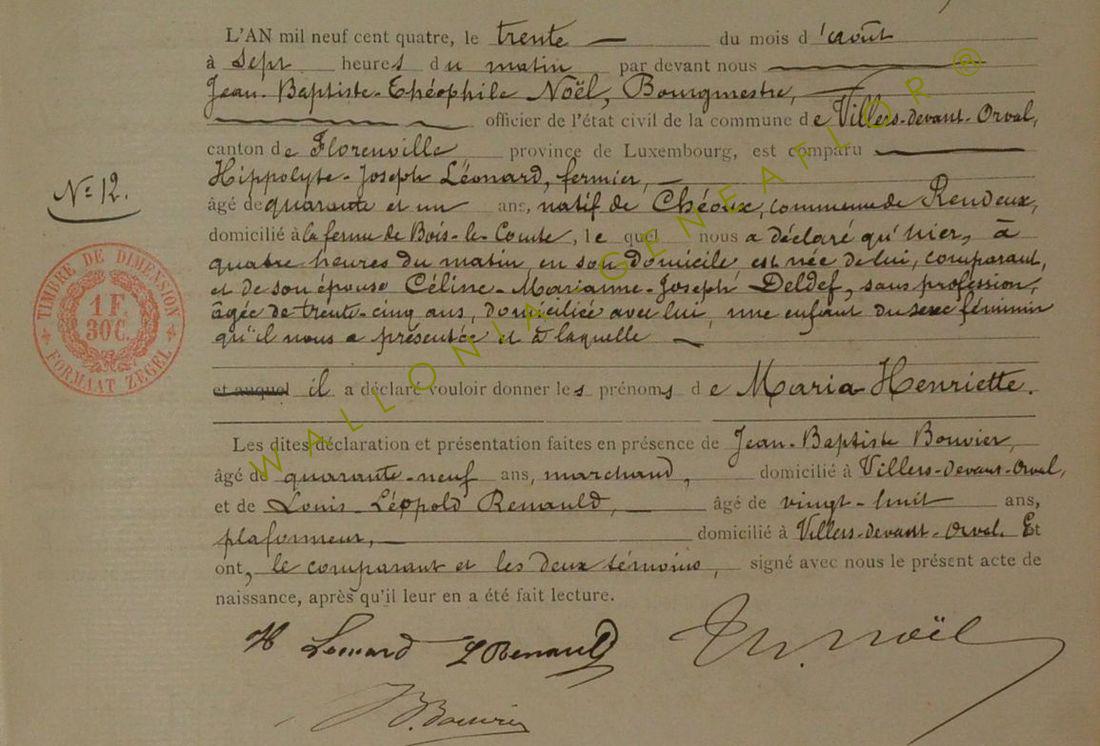 L'AN mil neuf cent quatre, le trente du mois d'Août
à Sept heures du matin par devant nous
Jean-Baptiste-Théophile Noël, Bourgmestre,
officier de l'état civil de la commune de Villers-devant-Orval,
canton de Florenville province de Luxembourg, est comparu
Hippolyte-Joseph Léonard, fermier,
N° 12.
âgé de quarante et un ans, natif de Chéoux, commune de Rendeux,
domicilié à la ferme de Bois-le-Comte, lequel nous a déclaré qu'hier, à
quatre heures du matin, en son domicile, est née de lui, comparant,
et de son épouse Céline-Marianne-Joseph Deldef, sans profession,
âgée de trente-cinq ans, domiciliée avec lui, une enfant du sexe féminin
qu'il nous a présentée et à laquelle
et auquel il a déclaré vouloir donner les prénoms de Maria-Henriette.
TIMBRE DE DIMENSION
1 F.
30C.
FORMAAT ZEGEL
Les dites déclaration et présentation faites en présence de Jean-Baptiste Bouvier,
âgé de quarante-neuf ans, marchand, domicilié à Villers-devant-Orval,
et de Louis-Léopold Renauld, âgé de vingt-huit ans,
plaformeur, domicilié à Villers-devant-Orval. Et
ont, le comparant et les deux témoins, signé avec nous le présent acte de
naissance, après qu'il leur en a été fait lecture.
H Leonard L Renauld Th. Noël
J B. Bouvier
WALLONIA GENEAFLOR ®